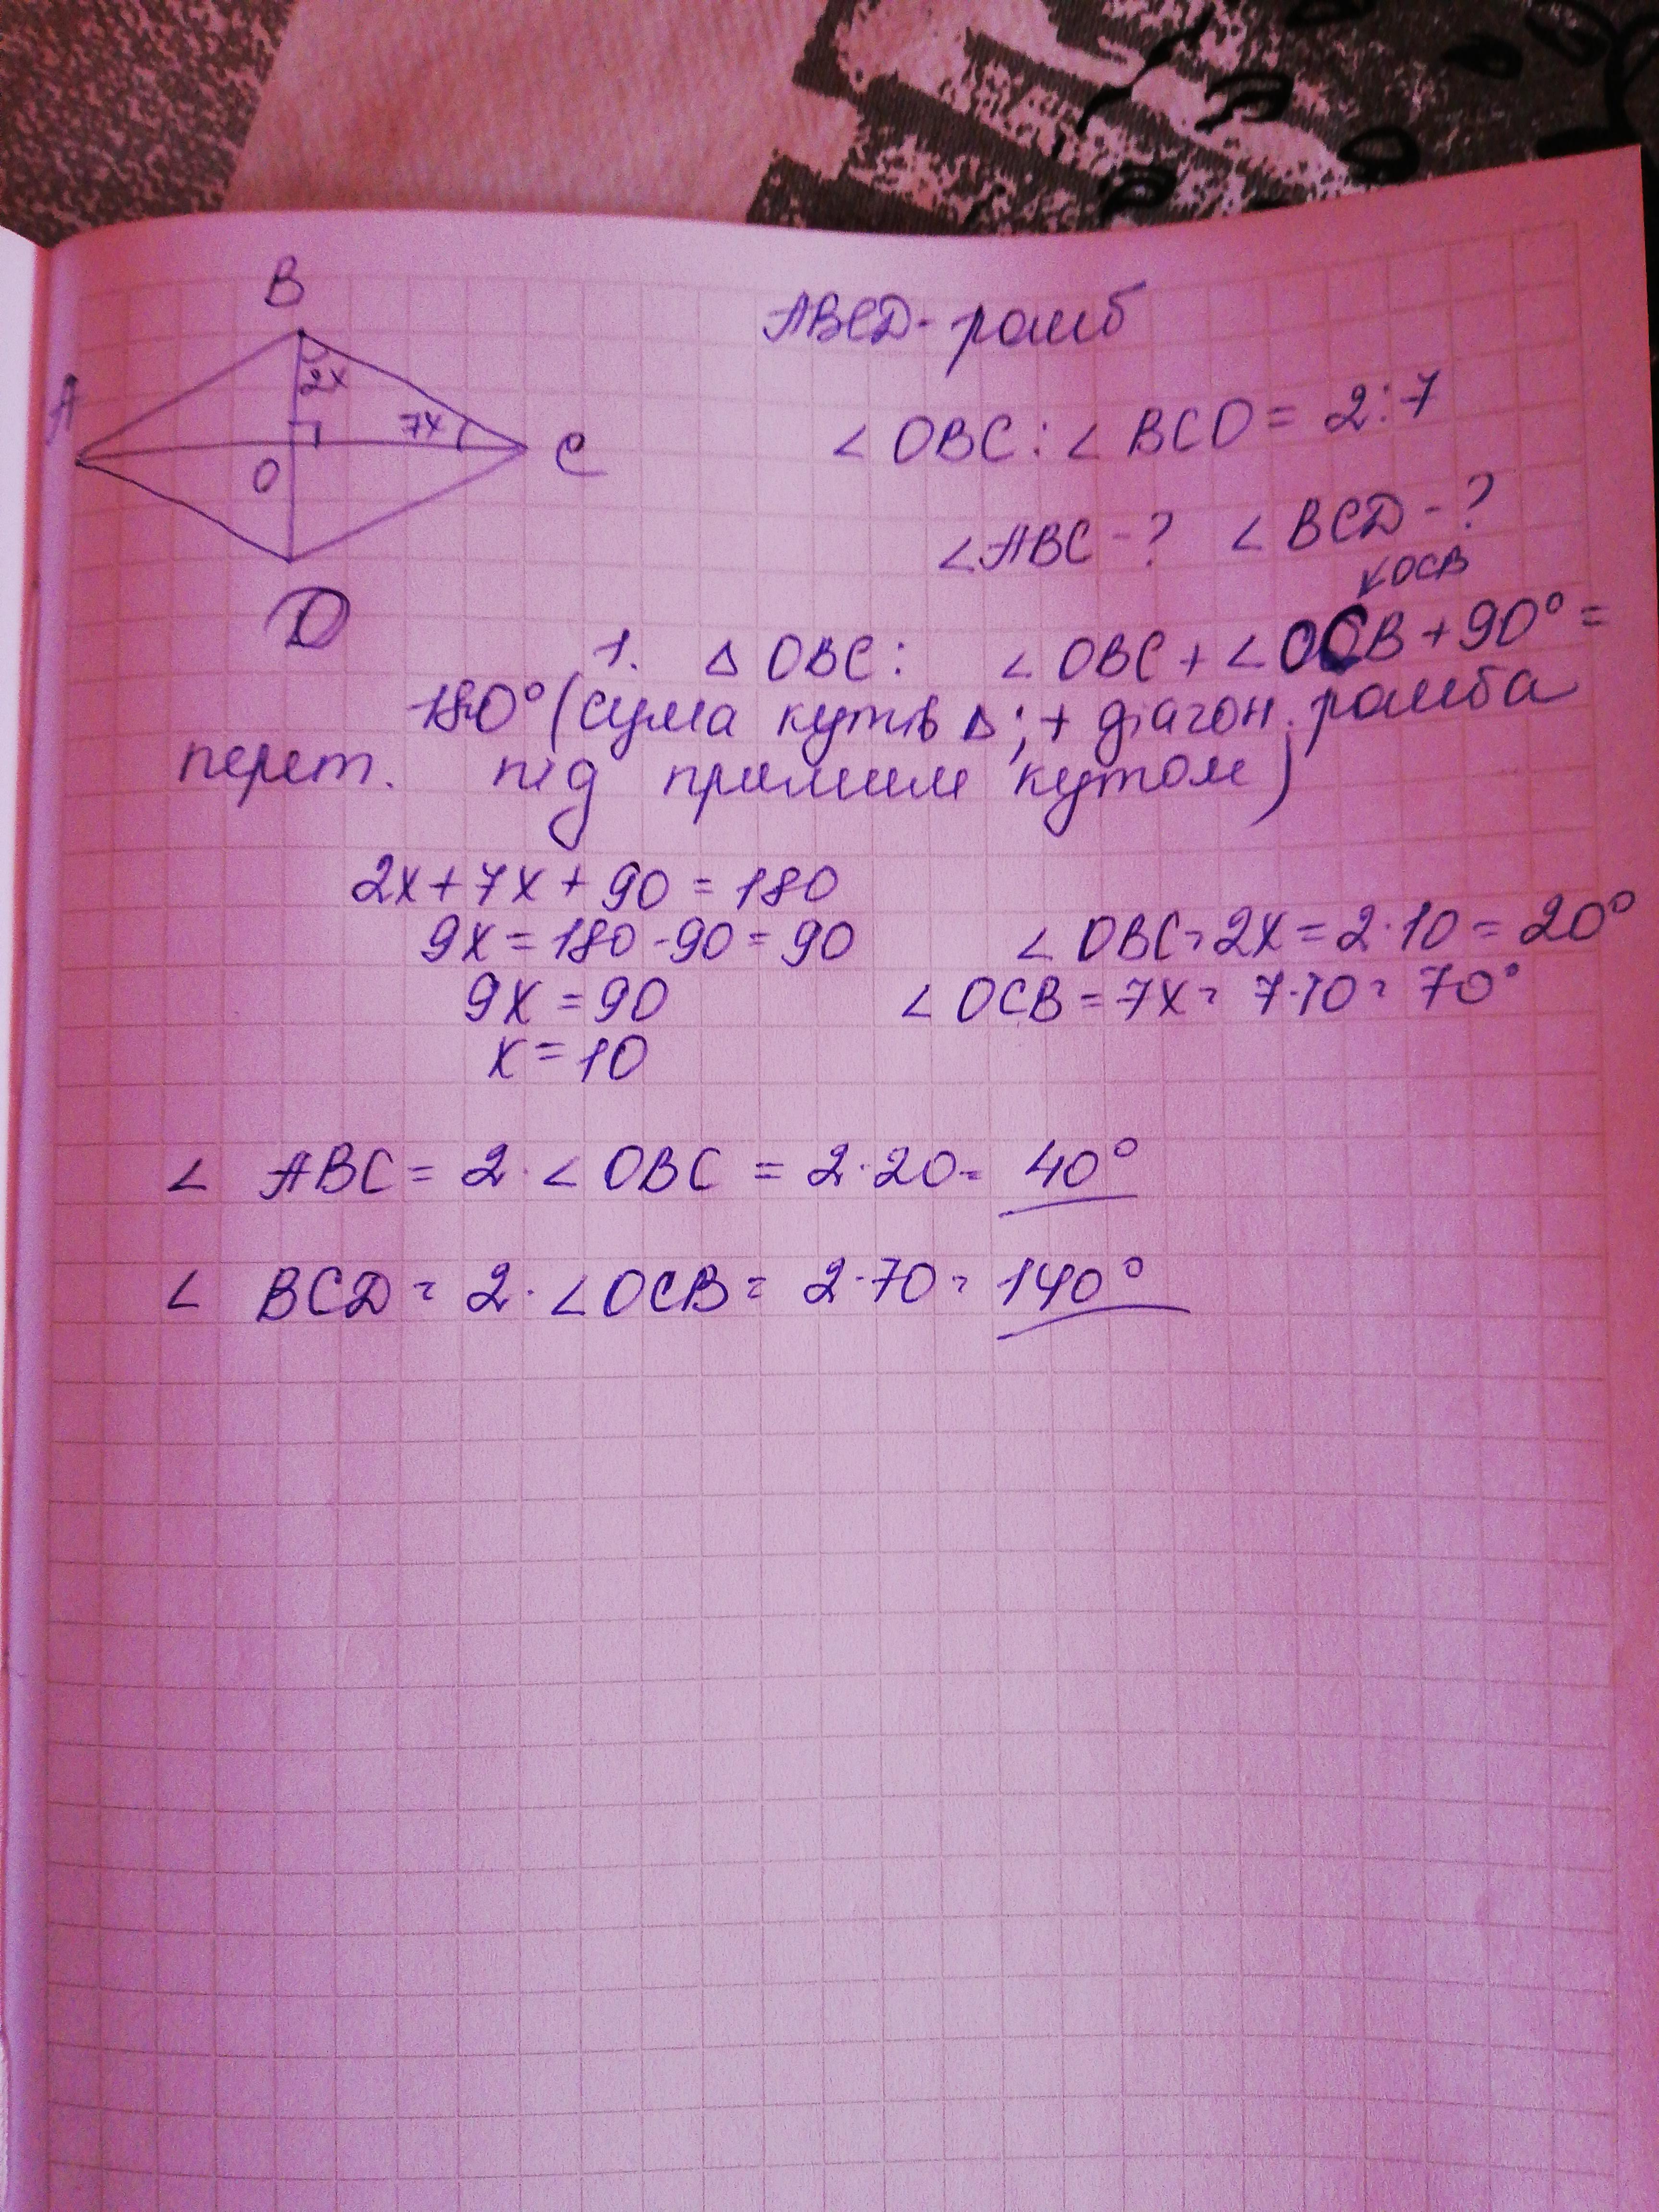 B
A
2x
7x
O
C
D
ABCD - ромб
∠ OBC : ∠ BCO = 2:7
∠ABC - ? ∠ BCD - ?
∠OCB
1. △ OBC: ∠ OBC + ∠OCB + 90° =
180° (сума кутів △; + діагон. ромба
перет. під прямим кутом)
2x + 7x + 90 = 180
9x = 180 - 90 = 90
9x = 90
x = 10
∠ OBC = 2x = 2·10 = 20°
∠ OCB = 7x = 7·10 = 70°
∠ ABC = 2·∠ OBC = 2·20 = 40°
∠ BCD = 2·∠OCB = 2·70 = 140°